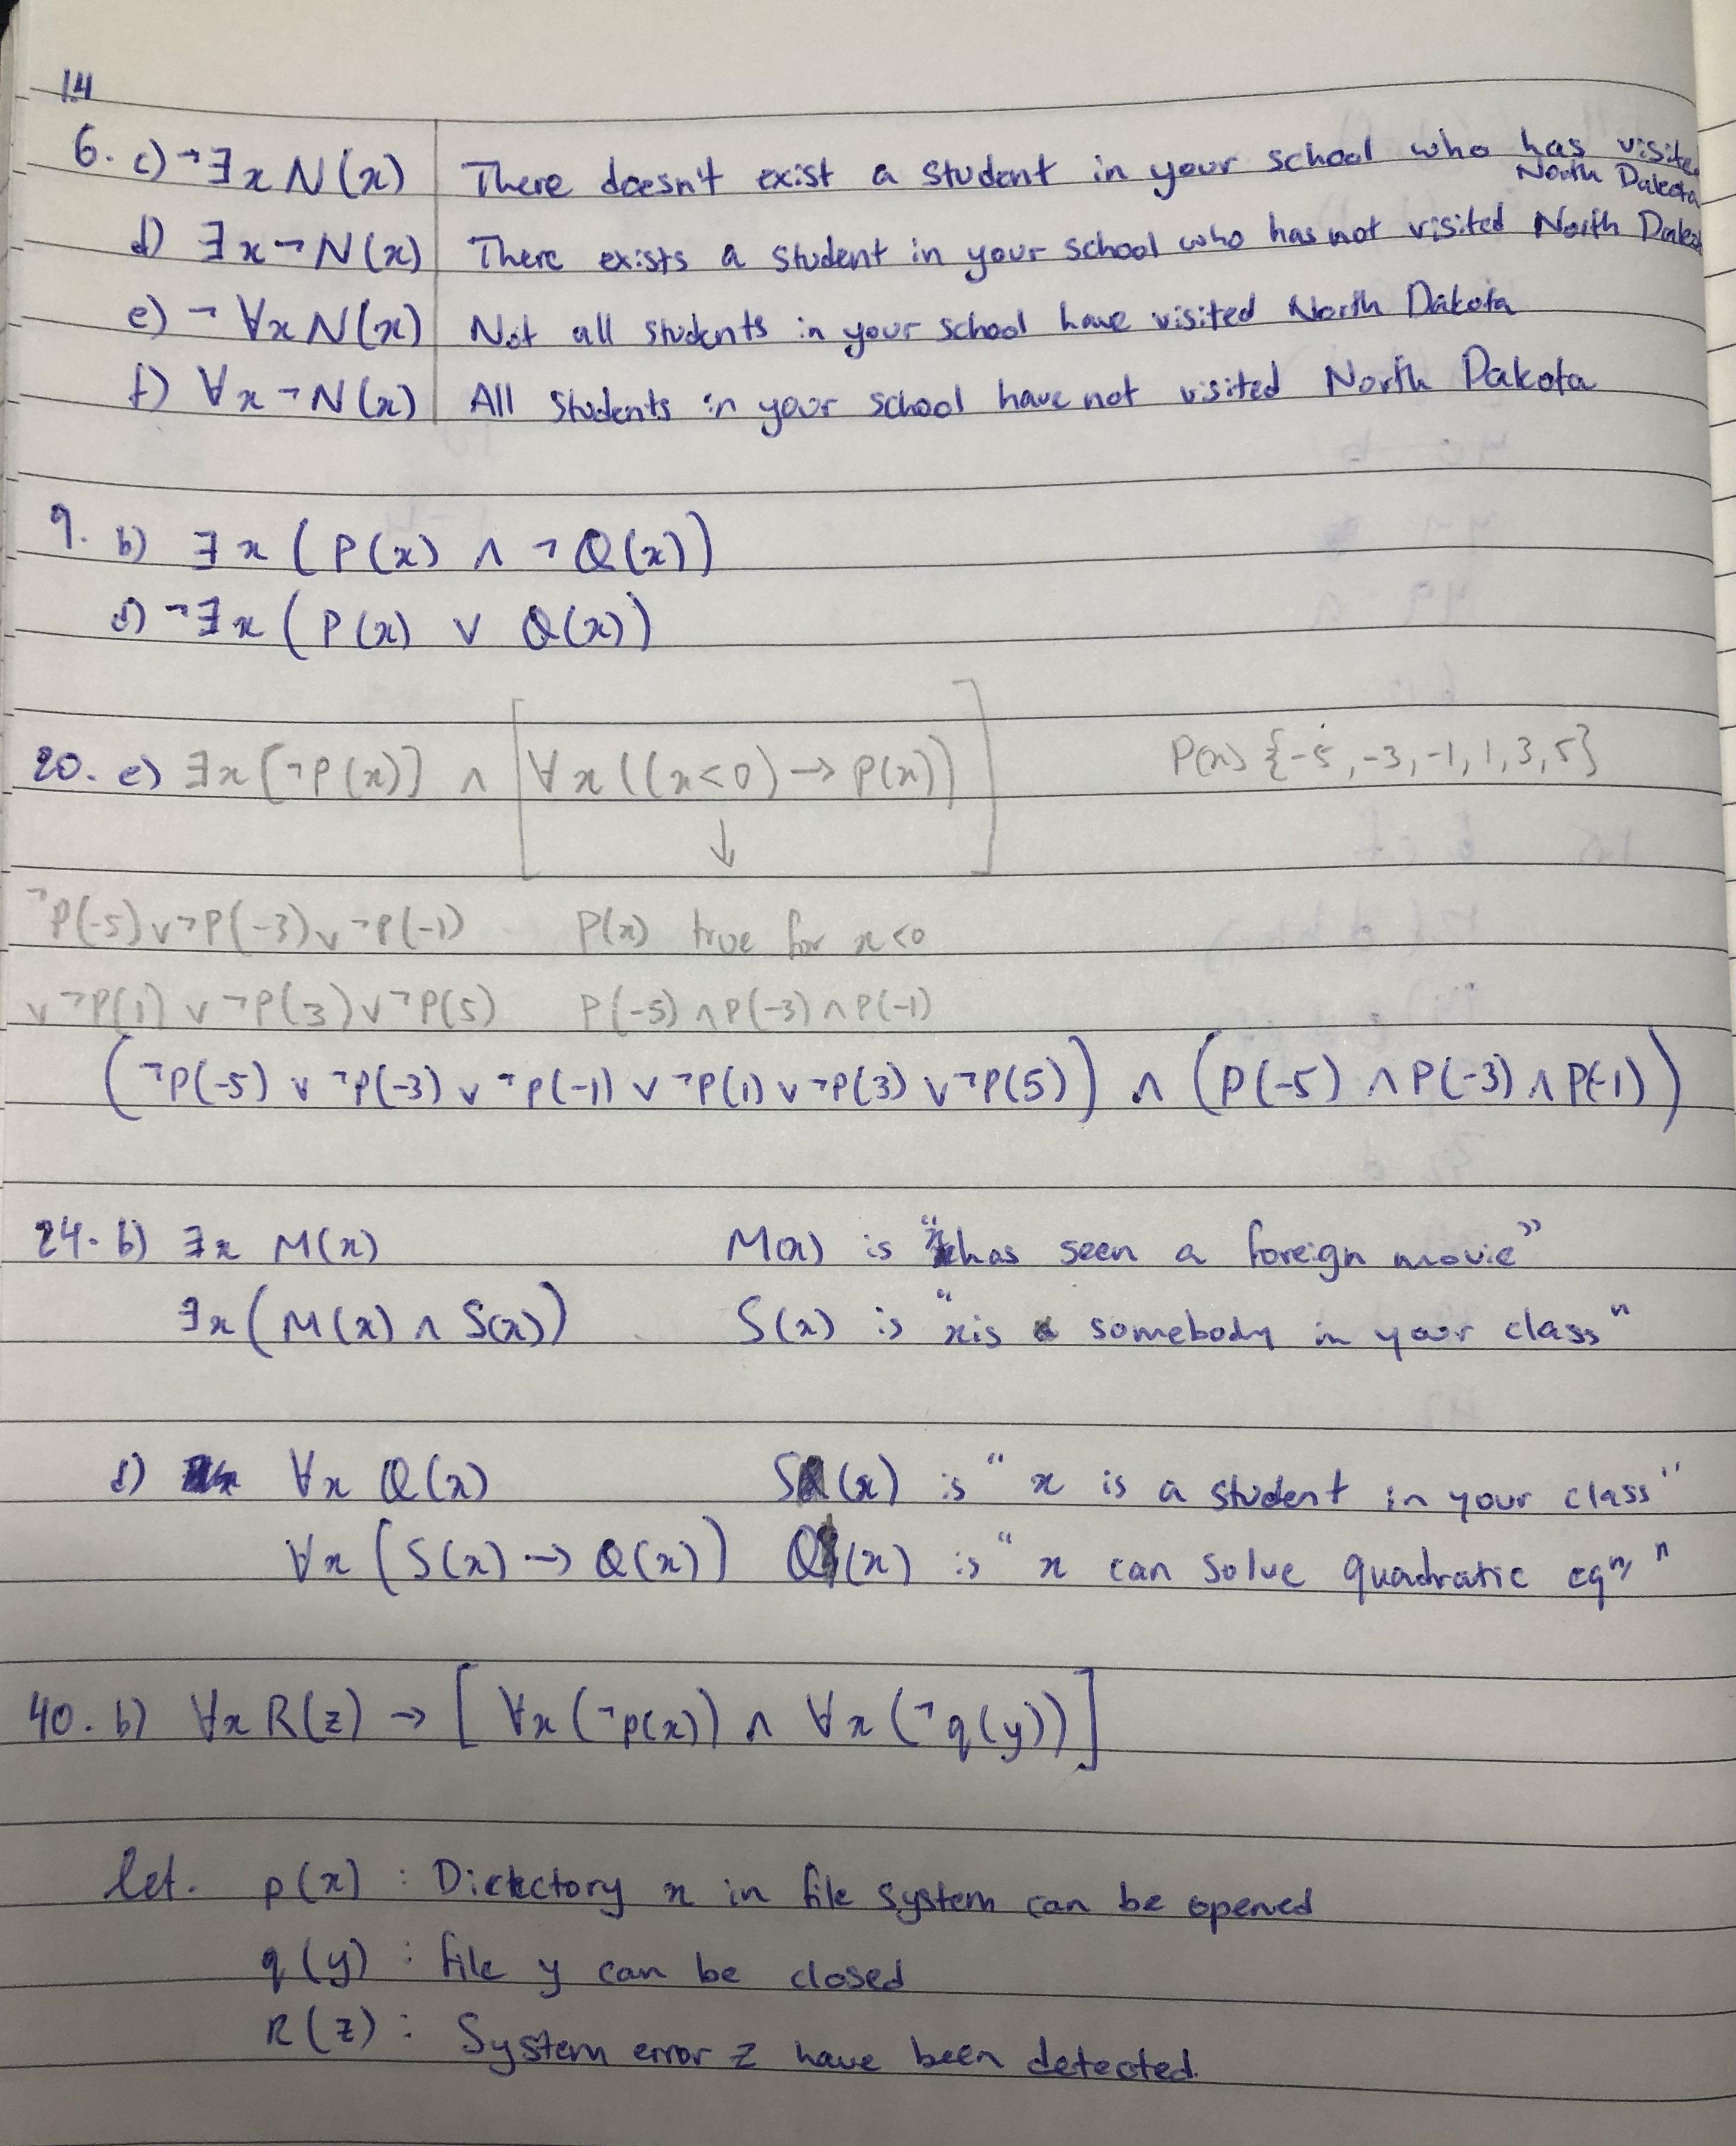 1.4
6. c) ¬∃x N(x) There doesn't exist a student in your school who has visite
North Dakota
d) ∃x ¬N(x) There exists a student in your school who has not visited North Dako
e) ¬∀x N(x) Not all students in your school have visited North Dakota
f) ∀x ¬N(x) All students in your school have not visited North Dakota
9. b) ∃x (P(x) ∧ ¬Q(x))
d) ¬∃x (P(x) ∨ Q(x))
20. e) ∃x [¬P(x)] ∧ [∀x ((x<0) → P(x))] P(x) {-5, -3, -1, 1, 3, 5}
↓
¬P(-5) ∨ ¬P(-3) ∨ ¬P(-1) P(x) true for x<0
∨ ¬P(1) ∨ ¬P(3) ∨ ¬P(5) P(-5) ∧ P(-3) ∧ P(-1)
(¬P(-5) ∨ ¬P(-3) ∨ ¬P(-1) ∨ ¬P(1) ∨ ¬P(3) ∨ ¬P(5)) ∧ (P(-5) ∧ P(-3) ∧ P(-1))
24. b) ∃x M(x) M(x) is "has seen a foreign movie"
∃x (M(x) ∧ S(x)) S(x) is "x is somebody in your class"
d) ∀x Q(x) S(x) is "x is a student in your class"
∀x (S(x) → Q(x)) Q(x) is "x can solve quadratic eqⁿ"
40. b) ∀x R(z) → [∀x (¬p(x)) ∧ ∀x (¬q(y))]
let. p(x) : Directory x in file system can be opened
q(y) : file y can be closed
R(z) : System error z have been detected.